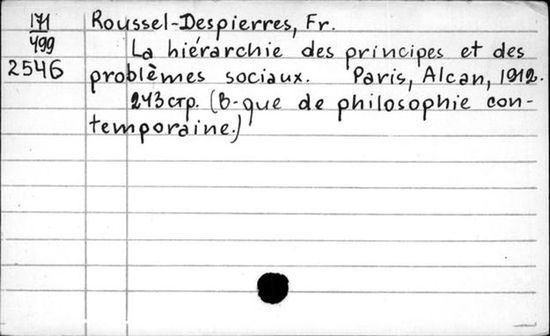 171 Roussel-Despierres, Fr.
499 La hiérarchie des principes et des
2546 problèmes sociaux. Paris, Alcan, 1912.
243 стр. (B-que de philosophie con-
temporaine.)